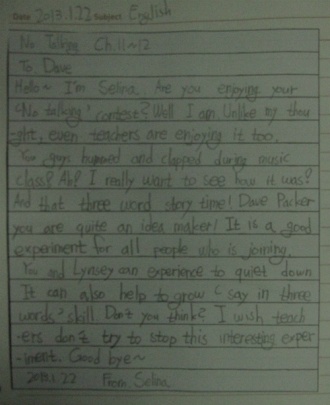 Date 2013.1.22 Subject English
No Talking Ch.11~12
To. Dave
Hello~ I'm Selina. Are you enjoying your
'No talking' contest? Well I am. Unlike my thou
-ght, even teachers are enjoying it too.
You guys hummed and clapped during music
class? Ah? I really want to see how it was?
And that three word story time! Dave Packer
you are quite an idea maker! It is a good
experiment for all people who is joining.
You and Lynsey can experience to quiet down
It can also help to grow 'say in three
words' skill. Don't you think? I wish teach
-ers don't try to stop this interesting exper
-iment. Good bye~
2013.1.22 From. Selina